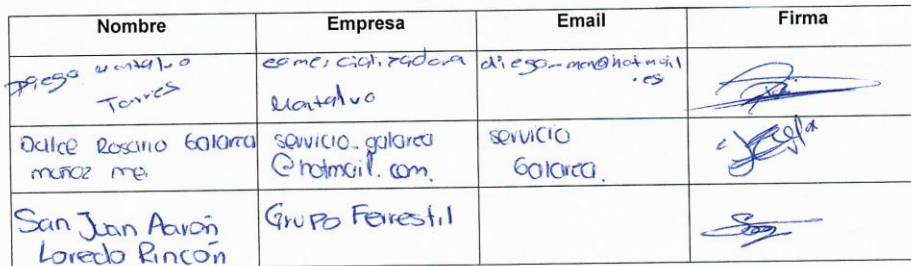 Nombre Empresa Email Firma
Diego Montalvo
Torres
comercializadora
Montalvo
diego-mon@hotmail
.es
Dulce Rosario Galarca
muñoz me.
servicio_galarca
@hotmail.com.
servicio
Galarca.
San Juan Aarón
Loredo Rincón
Grupo Ferrestil